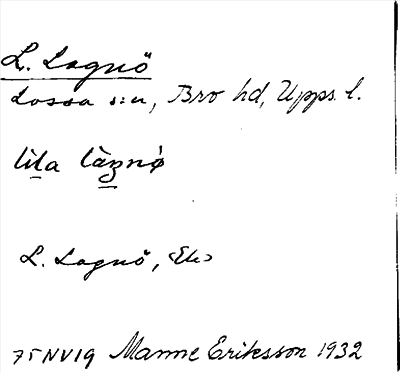 L. Lagnö
Lossa s:n, Bro hd, Upps. l.
lìla làgnö̀
L. Lagnö, <Ek>
75NV19 Manne Eriksson 1932